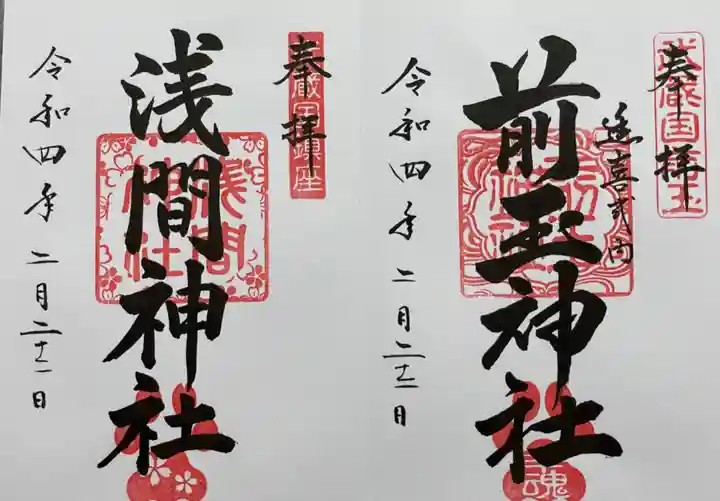 奉拝
武蔵国埼玉
延喜式内
前玉神社
魂
令和四年二月二十一日
奉拝
蔵国鎮座
浅間神社
浅間神社
令和四年二月二十一日